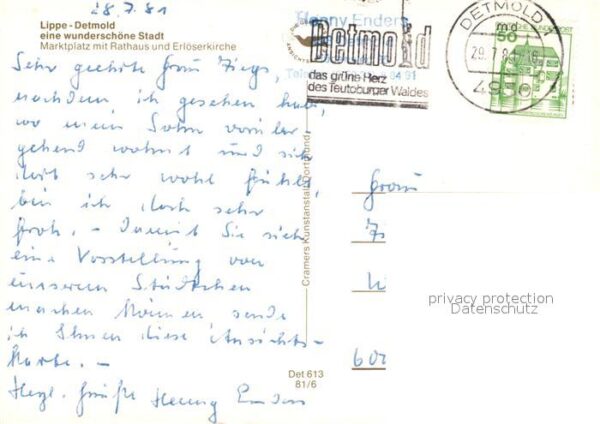 28.7.81
Lippe - Detmold
eine wunderschöne Stadt
Marktplatz mit Rathaus und Erlöserkirche
Sehr geehrte Frau
nachdem ich gesehen habe,
wo mein Sohn vorüber-
gehend wohnt und sich
dort sehr wohl fühlt,
bin ich doch sehr
froh. - Damit Sie sich
eine Vorstellung von
unserem Städtchen
machen können sende
ich Ihnen diese Ansichts-
karte. -
Herzl. Grüße Henny Enders
Henny Enders
Detmold
das grüne Herz
des Teutoburger Waldes
DETMOLD
md
29.7.81
50
Cramers Kunstanstalt, Dortmund
Frau
privacy protection
Datenschutz
Det 613
81/6